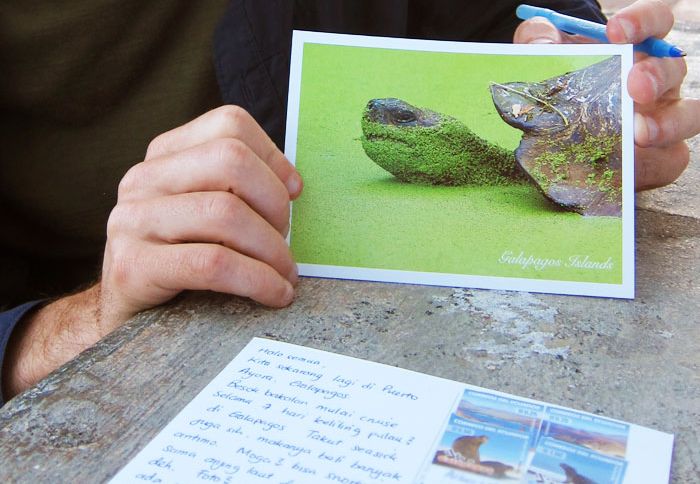 Galapagos Islands
Halo semua.
Kita sekarang lagi di Puerto
Ayora. Galapagos.
Besok bakalan mulai cruise
selama 7 hari keliling pulau2
di Galapagos. Takut seasick
juga sih. makanya beli banyak
antimo. Moga2 bisa
sama anjing laut
deh. Foto2
ada